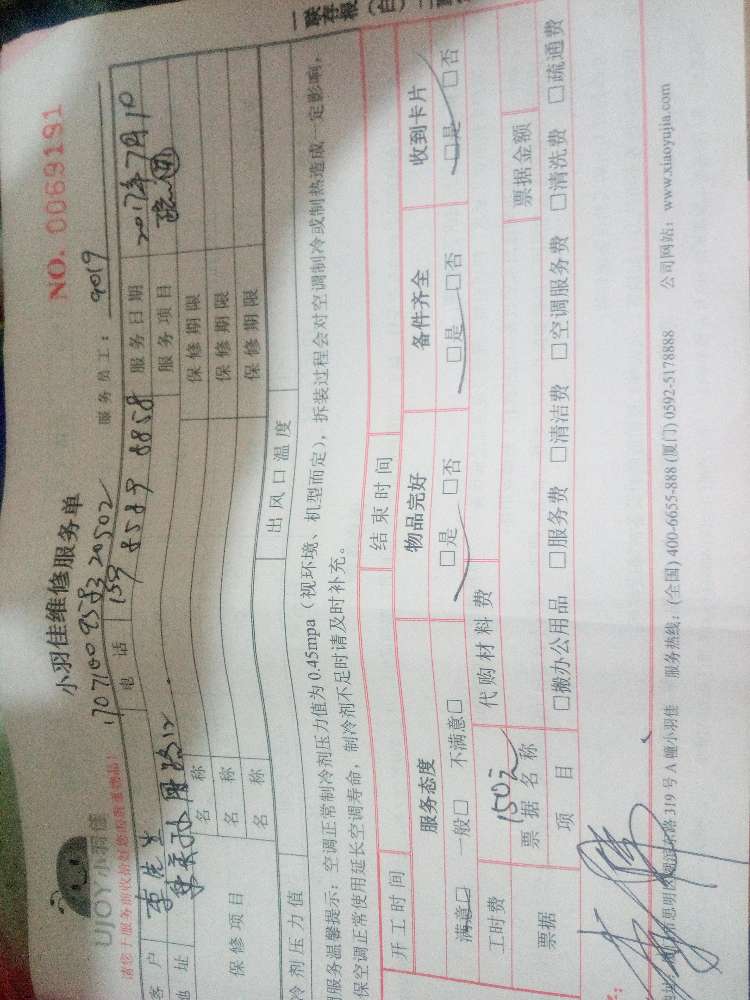 一联存根(白)二联
UJOY小羽佳
小羽佳维修服务单
NO. 0069191
请您于服务前收拾好您的贵重物品!
1707100958320502
服务员工: 9019
客户 李先生 电话 159 8589 8858 服务日期 2017年7月10
地址 服务项目
保修项目 名称 保修期限
名称 保修期限
名称 保修期限
冷剂压力值 出风口温度
服务温馨提示:空调正常制冷剂压力值为 0.45mpa(视环境、机型而定),拆装过程会对空调制冷或制热造成一定影响,
保空调正常使用延长空调寿命,制冷剂不足时请及时补充。
开工时间 结束时间
服务态度 物品完好 备件齐全 收到卡片
满意□ 一般□ 不满意□ □是 □否 □是 □否 □是 □否
工时费 150元 代购材料费
票据 票据名称 票据金额
项目 □搬办公用品 □服务费 □清洁费 □空调服务费 □清洗费 □疏通费
思明区湖滨东路 319 号 A 幢小羽佳 服务热线:(全国) 400-6655-888 (厦门) 0592-5178888 公司网站:www.xiaoyujia.com